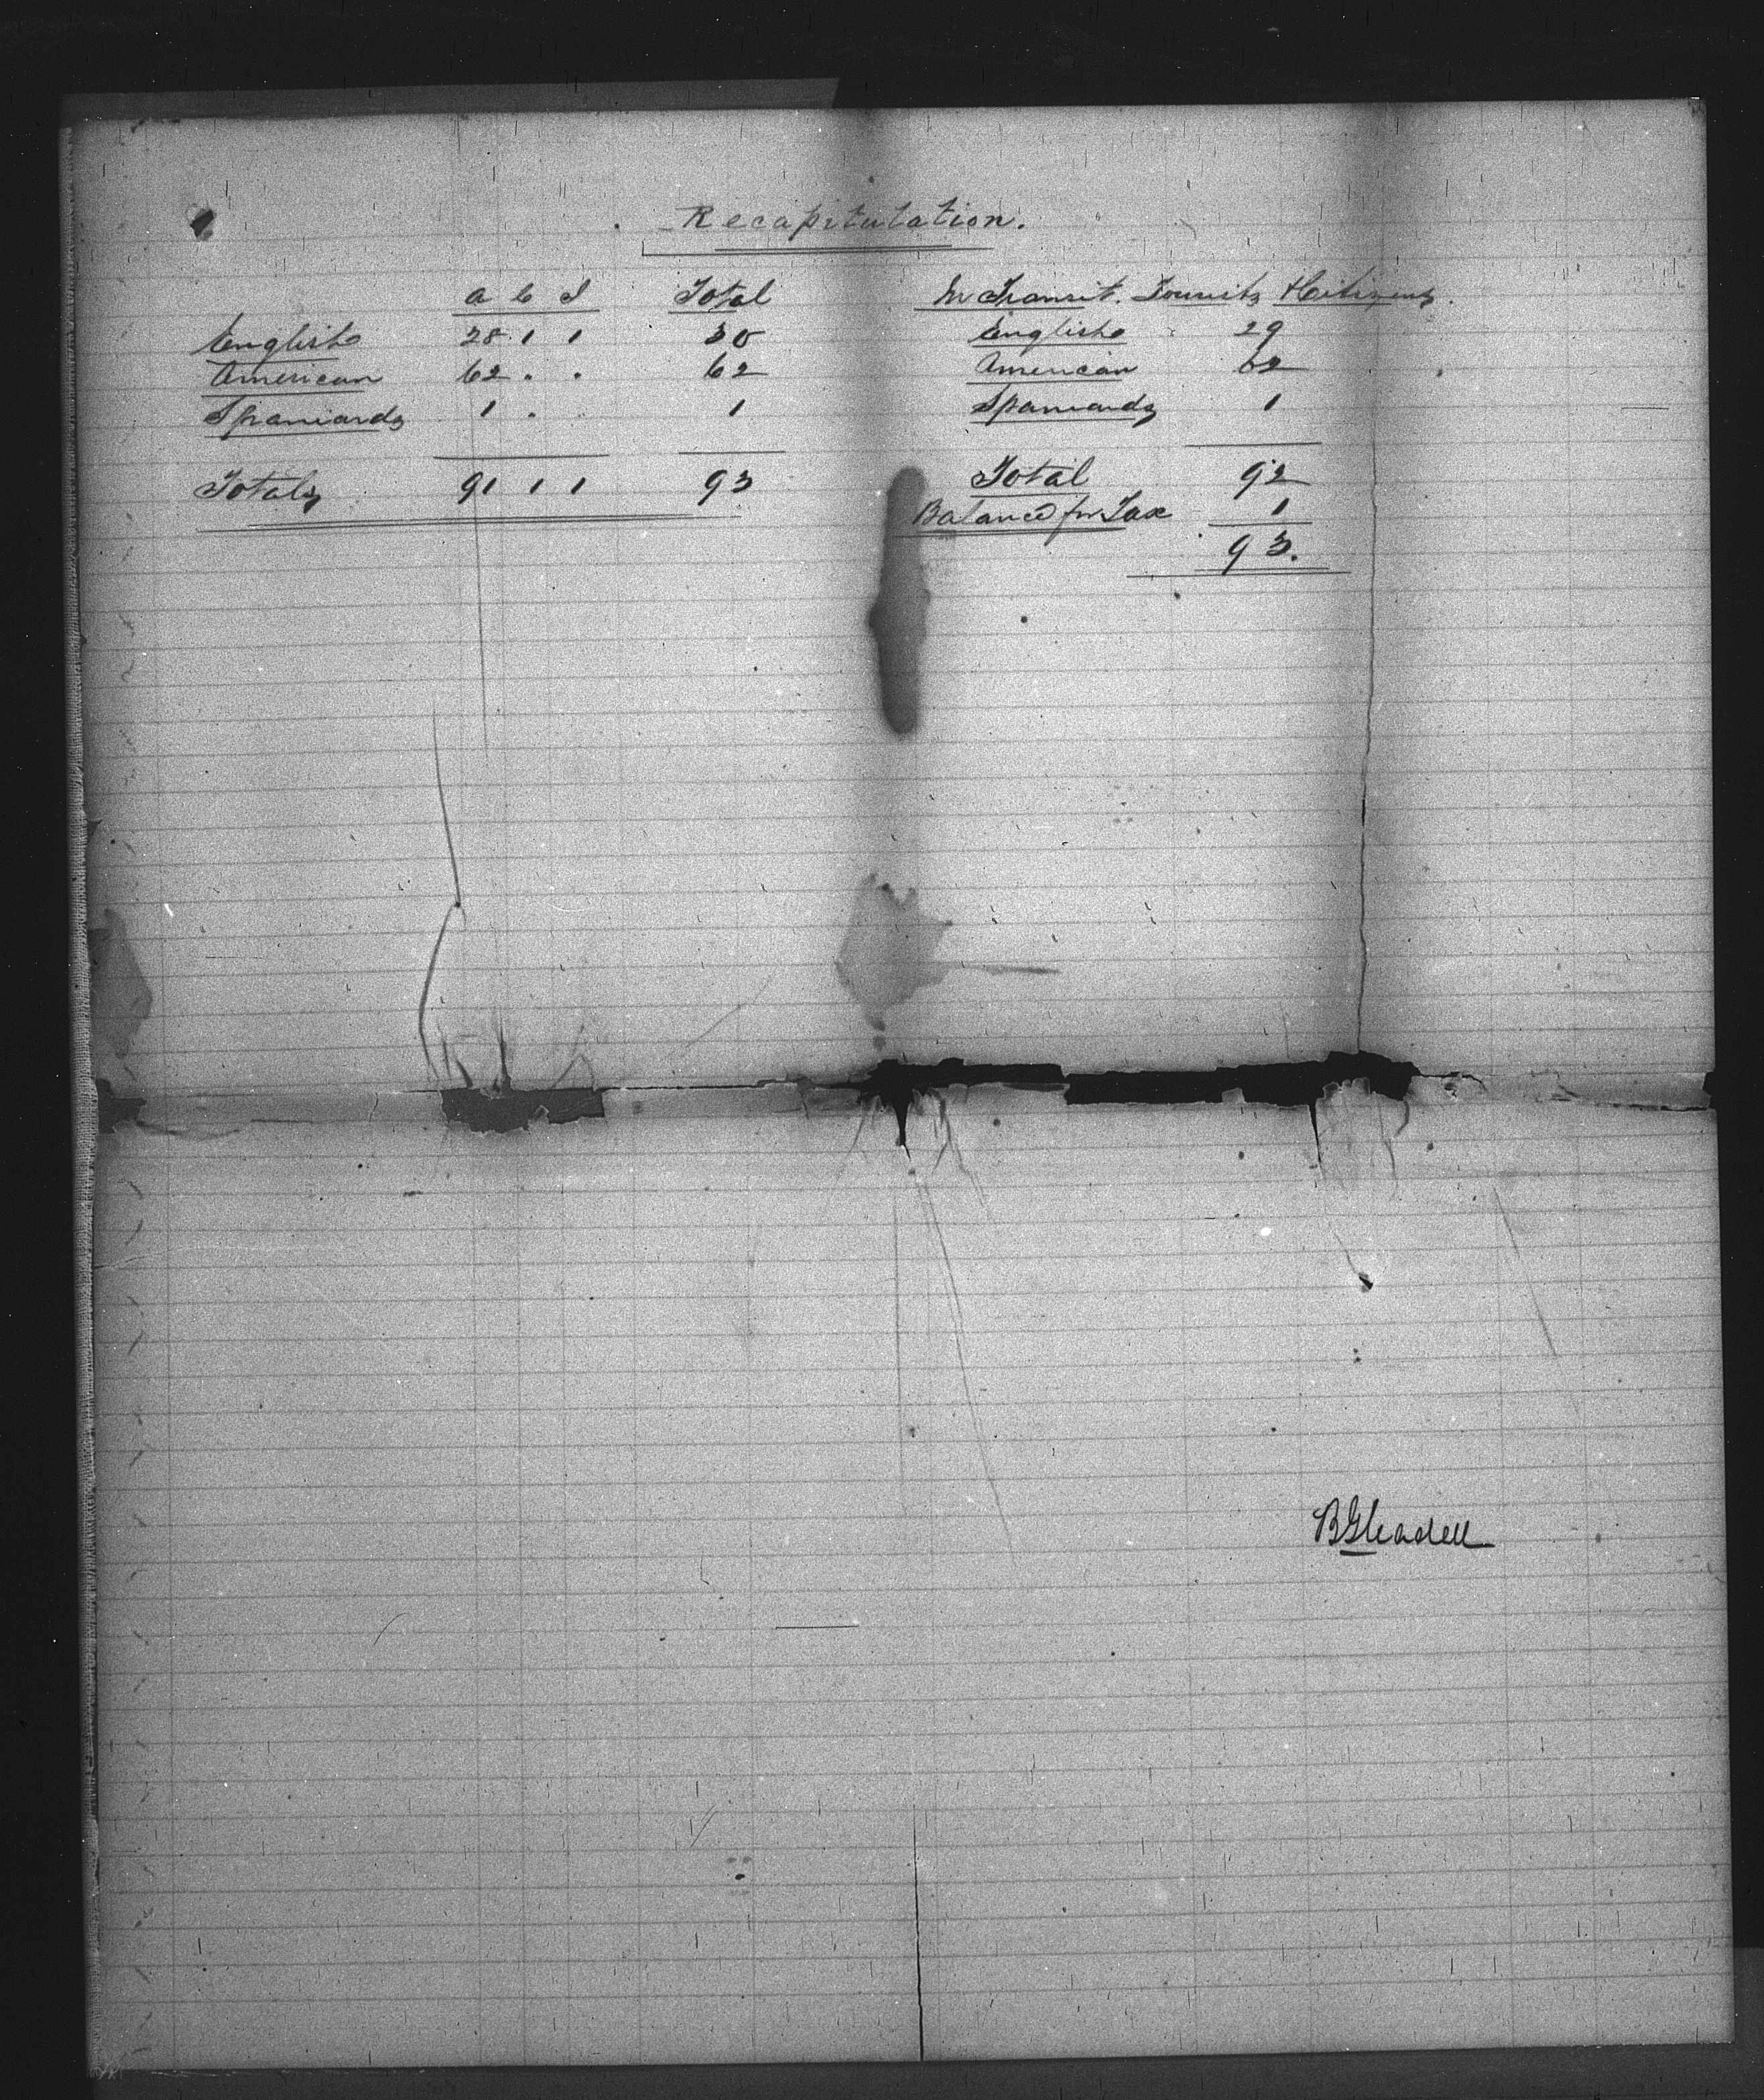 Recapitulation.
A C I Total
English 28 1 1 30
American 62 . . 62
Spaniards 1 . . 1
Totals 91 1 1 93
In Transit. Tourists & Citizens.
English 29
American 62
Spaniards 1
Total 92
Balance for Tax 1
93.
B Gleadell